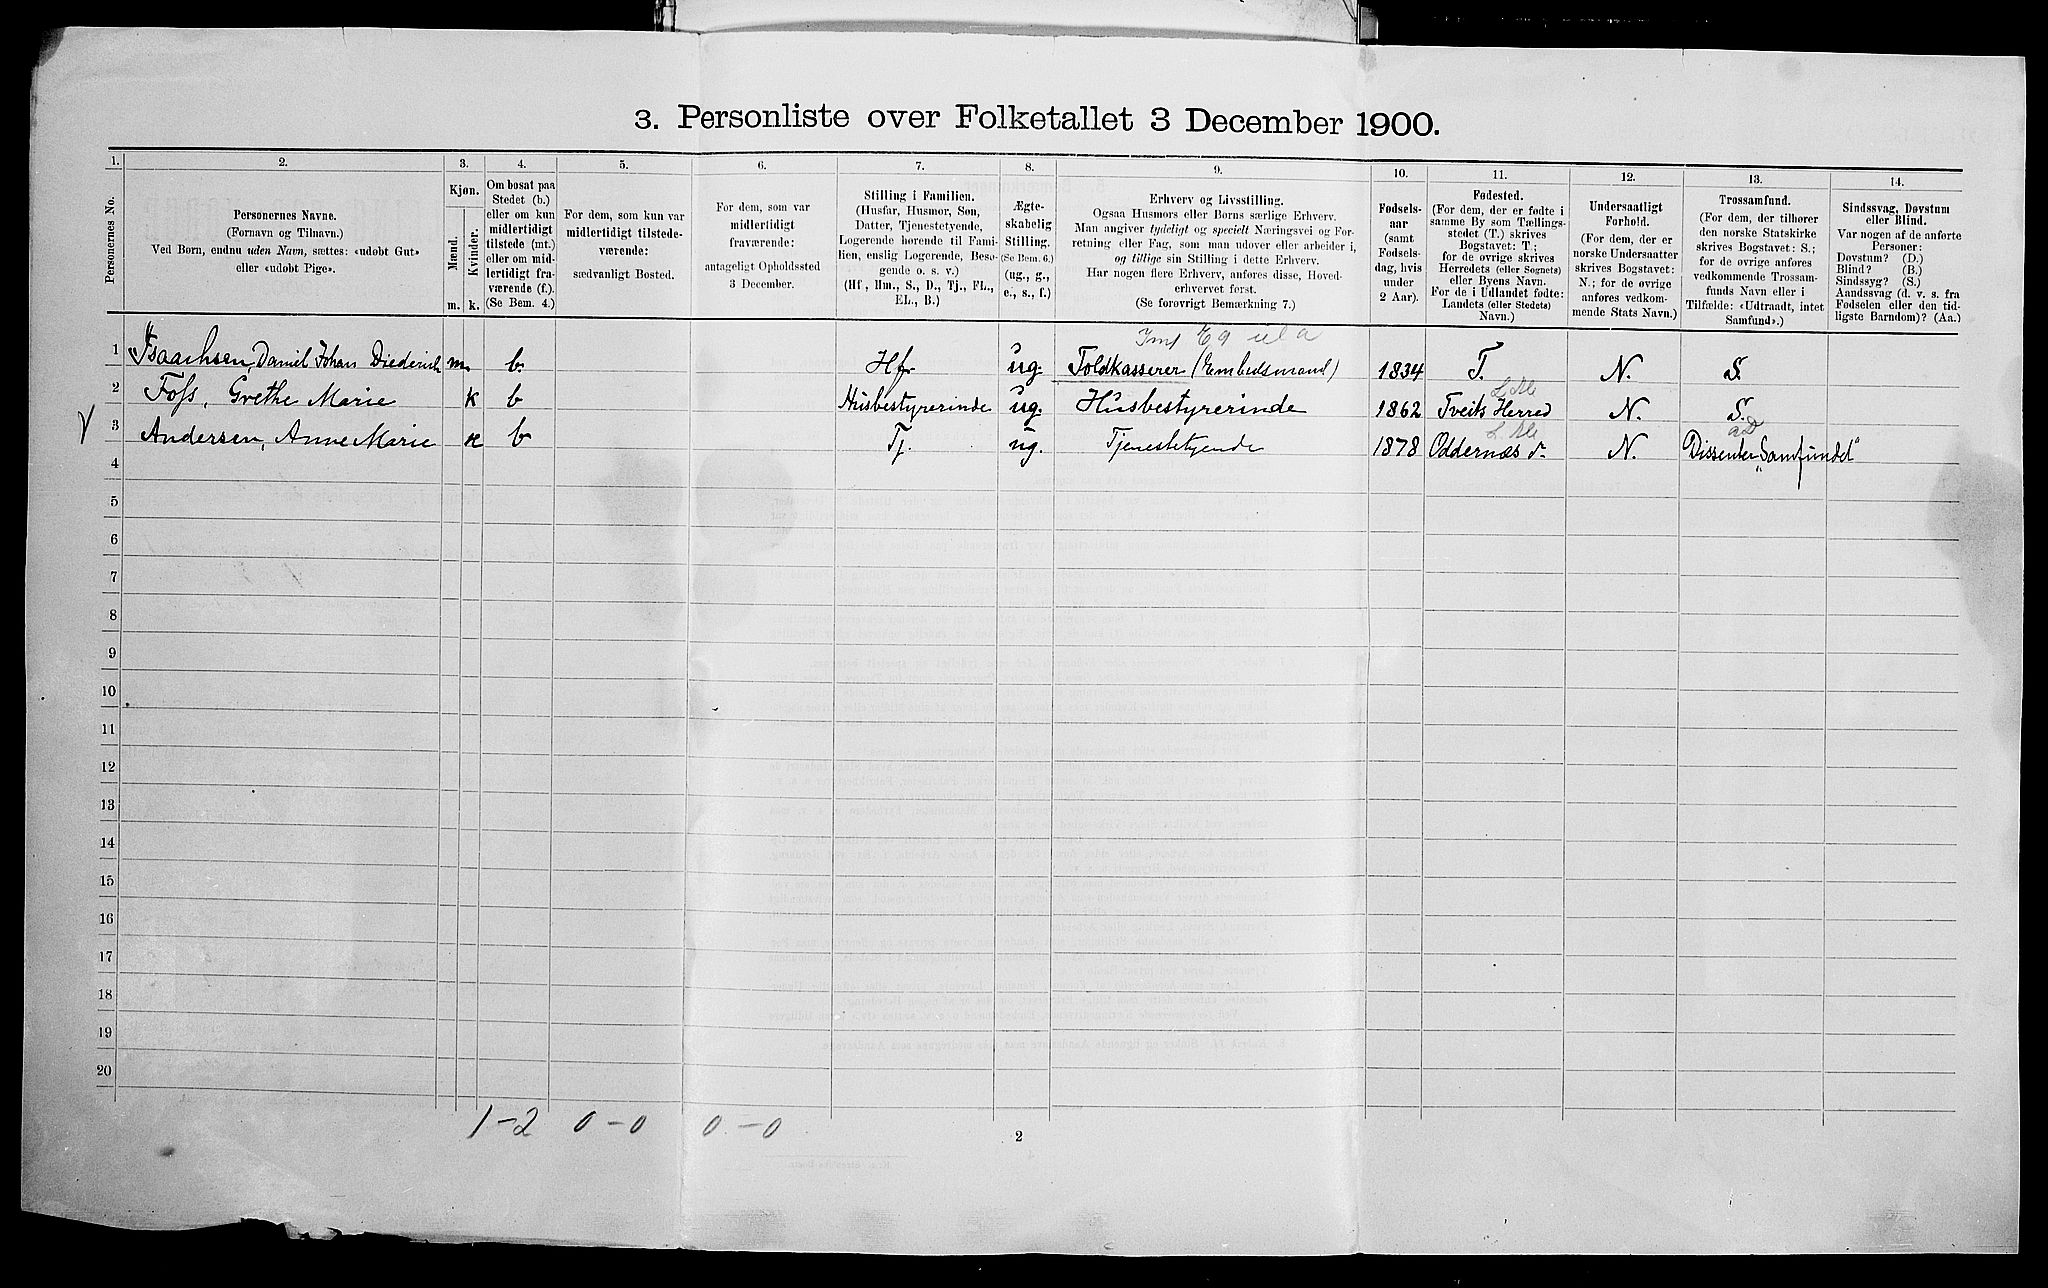 3. Personliste over Folketallet 3 December 1900.
1. 2. 3. 4. 5. 6. 7. 8. 9. 10. 11. 12. 13. 14.
Personernes No.
Personernes Navne.
(Fornavn og Tilnavn.)
Ved Børn, endnu uden Navn, sættes: «udøbt Gut»
eller «udøbt Pige».
Kjøn.
Mænd.
Kvinder.
m. k.
Om bosat paa
Stedet (b.)
eller om kun
midlertidigt
tilstede (mt.)
eller om mid-
lertidigt fra-
værende (f.).
(Se Bem. 4.)
For dem, som kun var
midlertidigt tilstede-
værende:
sædvanligt Bosted.
For dem, som var
midlertidigt
fraværende:
antageligt Opholdssted
3 December.
Stilling i Familien.
(Husfar, Husmor, Søn,
Datter, Tjenestetyende,
Logerende hørende til Fami-
lien, enslig Logerende, Besø-
gende o. s. v.)
(Hf, Hm., S., D., Tj., FL.,
EL., B.)
Ægte-
skabelig
Stilling.
(Se Bem. 6.)
(ug., g.,
e., s., f.)
Erhverv og Livsstilling.
Ogsaa Husmors eller Børns særlige Erhverv.
Man angiver tydeligt og specielt Næringsvei og For-
retning eller Fag, som man udover eller arbeider i,
og tillige sin Stilling i dette Erhverv.
Har nogen flere Erhverv, anføres disse, Hoved-
erhvervet først.
(Se forøvrigt Bemærkning 7.)
Fødsels-
aar
(samt
Fødsels-
dag, hvis
under
2 Aar).
Fødested.
(For dem, der er fødte i
samme By som Tællings-
stedet (T.) skrives
Bogstavet: T.;
for de øvrige skrives
Herredets (eller Sognets)
eller Byens Navn.
For de i Udlandet fødte:
Landets (eller Stedets)
Navn.)
Undersaatligt
Forhold.
(For dem, der er
norske Undersaatter
skrives Bogstavet:
N.; for de øvrige
anføres vedkom-
mende Stats Navn.)
Trossamfund.
(For dem, der tilhører
den norske Statskirke
skrives Bogstavet: S.;
for de øvrige anføres
vedkommende Trossam-
funds Navn eller i
Tilfælde: «Udtraadt, intet
Samfund».)
Sindssvag, Døvstum
eller Blind.
Var nogen af de anførte
Personer:
Døvstum? (D.)
Blind? (B.)
Sindssyg? (S.)
Aandssvag (d. v. s. fra
Fødselen eller den tid-
ligste Barndom)? (Aa.)
1 Isaachsen, Daniel Johan Diederich m. b. Hf. ug. Toldkasserer (Embedsmand) 1834 T. N. S.
2 Foss, Grethe Marie k b Husbestyrerinde ug. Husbestyrerinde 1862 Tveits Herred N. S.
3 Andersen, Anne Marie k b Tj. ug. Tjenestetyende 1878 Oddernæs N. Dissenter „Samfundet"
4
5
6
7
8
9
10
11
12
13
14
15
16
17
18
19
20
1-2 0-0 0-0
2